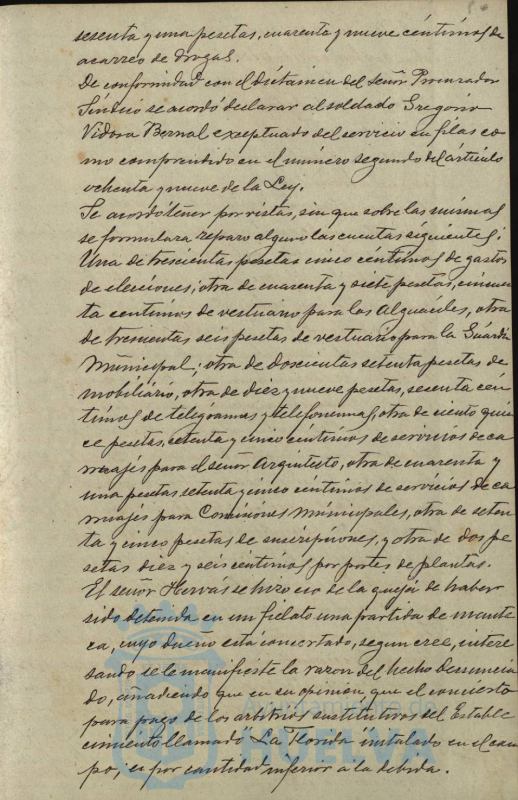 sesenta y una pesetas, cuarenta y nueve céntimos de
acarreo de drogas.
De conformidad con el dictamen del señor Procurador
Síndico se acordó declarar al soldado Gregorio
Vidosa Bernal exceptuado del servicio en filas co-
mo comprendido en el número segundo del artículo
ochenta y nueve de la Ley.
Se acordó tener por vistas, sin que sobre las mismas
se formulara reparo alguno las cuentas siguientes;
Una de trescientas pesetas cinco céntimos de gastos
de elecciones; otra de cuarenta y siete pesetas, cincuen-
ta centimos de vestuario para los Alguaciles, otra
de trescientas seis pesetas de vestuario para la Guardia
Municipal; otra de doscientas setenta pesetas de
mobiliario, otra de diez y nueve pesetas, sesenta cén-
timos de telegramas y telefonemas, otra de ciento quin-
ce pesetas, setenta y cinco céntimos de servicios de ca-
rruajes para el señor Arquitecto, otra de cuarenta y
una pesetas setenta y cinco céntimos de servicios de ca-
rruajes para Comisiones Municipales, otra de seten-
ta y cinco pesetas de suscripciones, y otra de dos pe-
setas diez y seis céntimos por portes de plantas.
El señor Hervás se hizo eco de la queja de haber
sido detenida en un fielato una partida de mante-
ca, cuyo dueño está concertado, segun cree, intere-
sando se le manifieste la razon del hecho denuncia-
do, añadiendo que en su opinion, que el concierto
para pago de los arbitrios sustitutivos del Estable-
cimiento llamado "La Florida" instalado en el cam-
po, es por cantidad inferior a la debida.
Ayuntamiento de
HUELVA